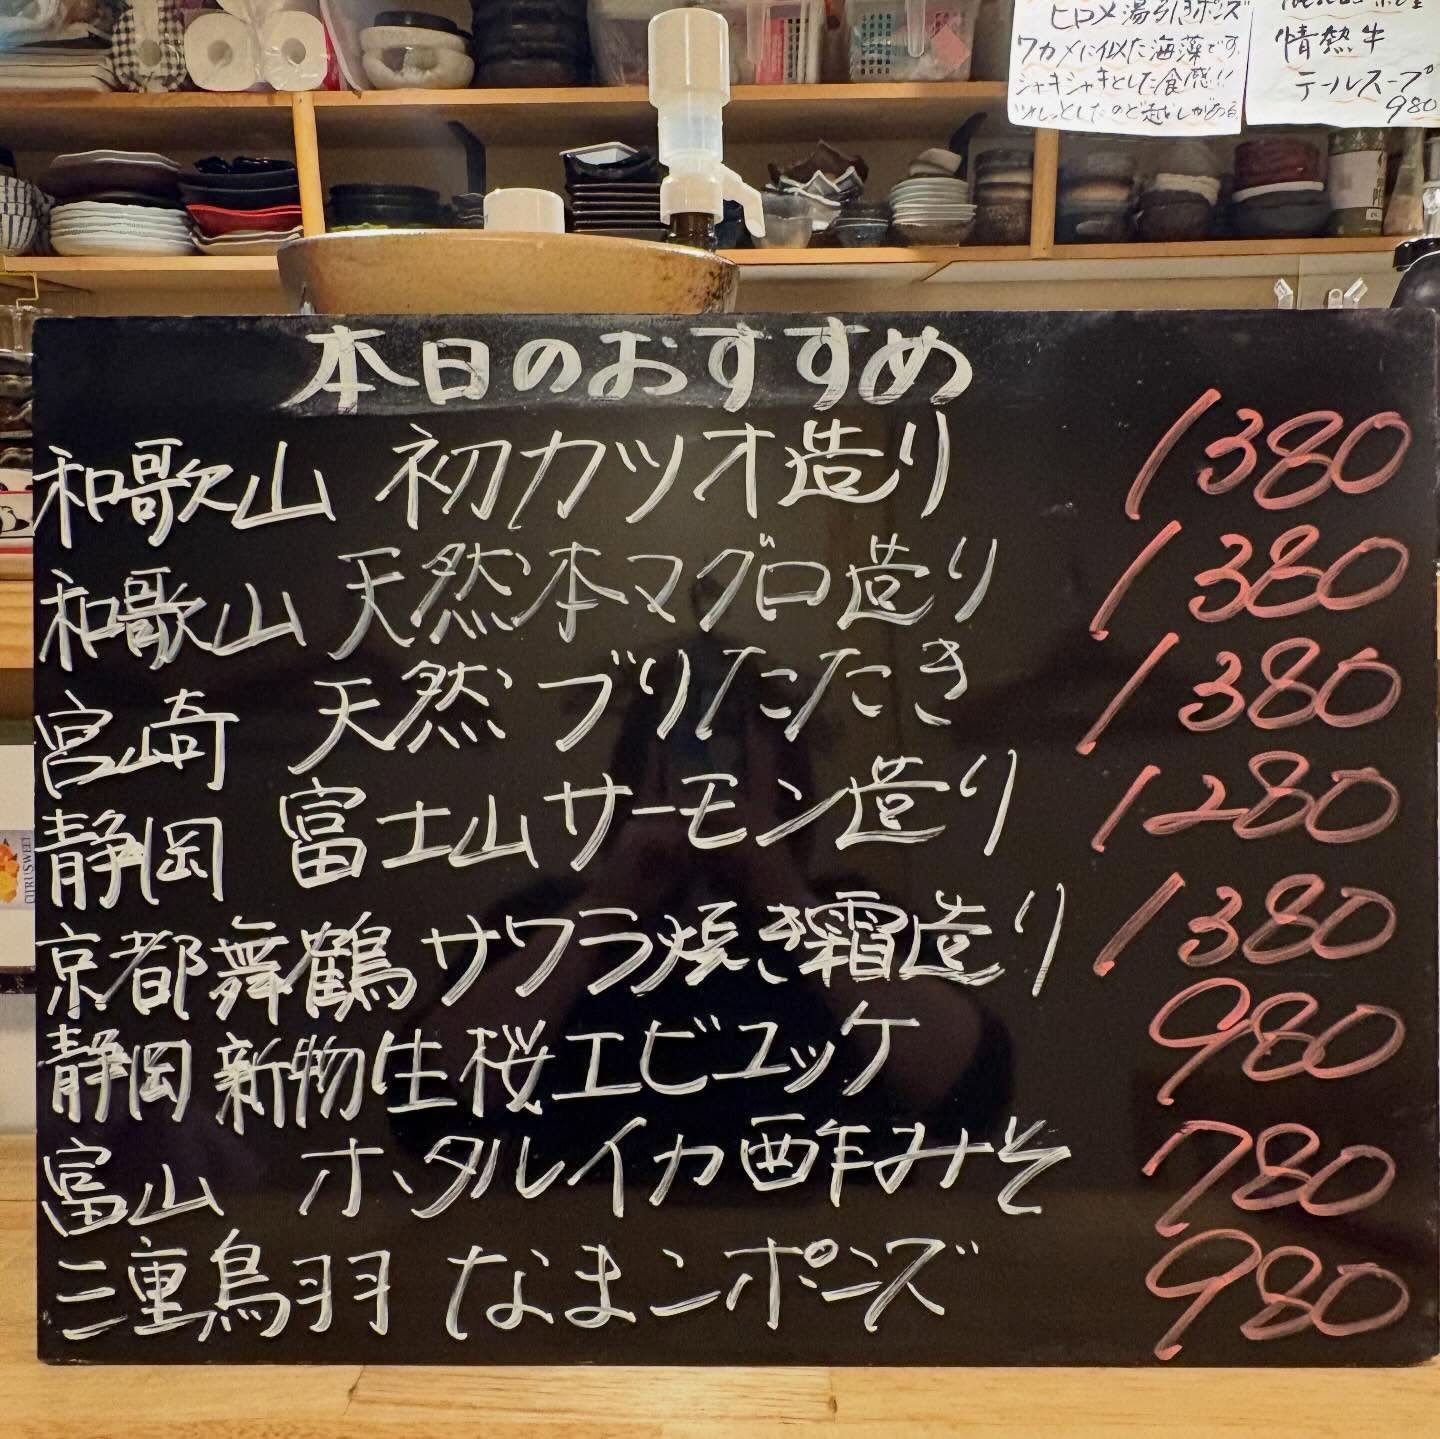 ヒロメ湯引きポンズ
ワカメに似た海藻です。
シャキシャキとした食感!!
ツルッとしたのど越しがある
情熱牛
テールスープ
980
本日のおすすめ
和歌山 初カツオ造り 1380
和歌山 天然本マグロ造り 1380
宮崎 天然ブリたたき 1380
静岡 富士山サーモン造り 1280
京都舞鶴サワラ焼き霜造り 1380
静岡 新物生桜エビユッケ 980
富山 ホタルイカ酢みそ 780
三重鳥羽 なまこポンズ 980
CITRUSWEET